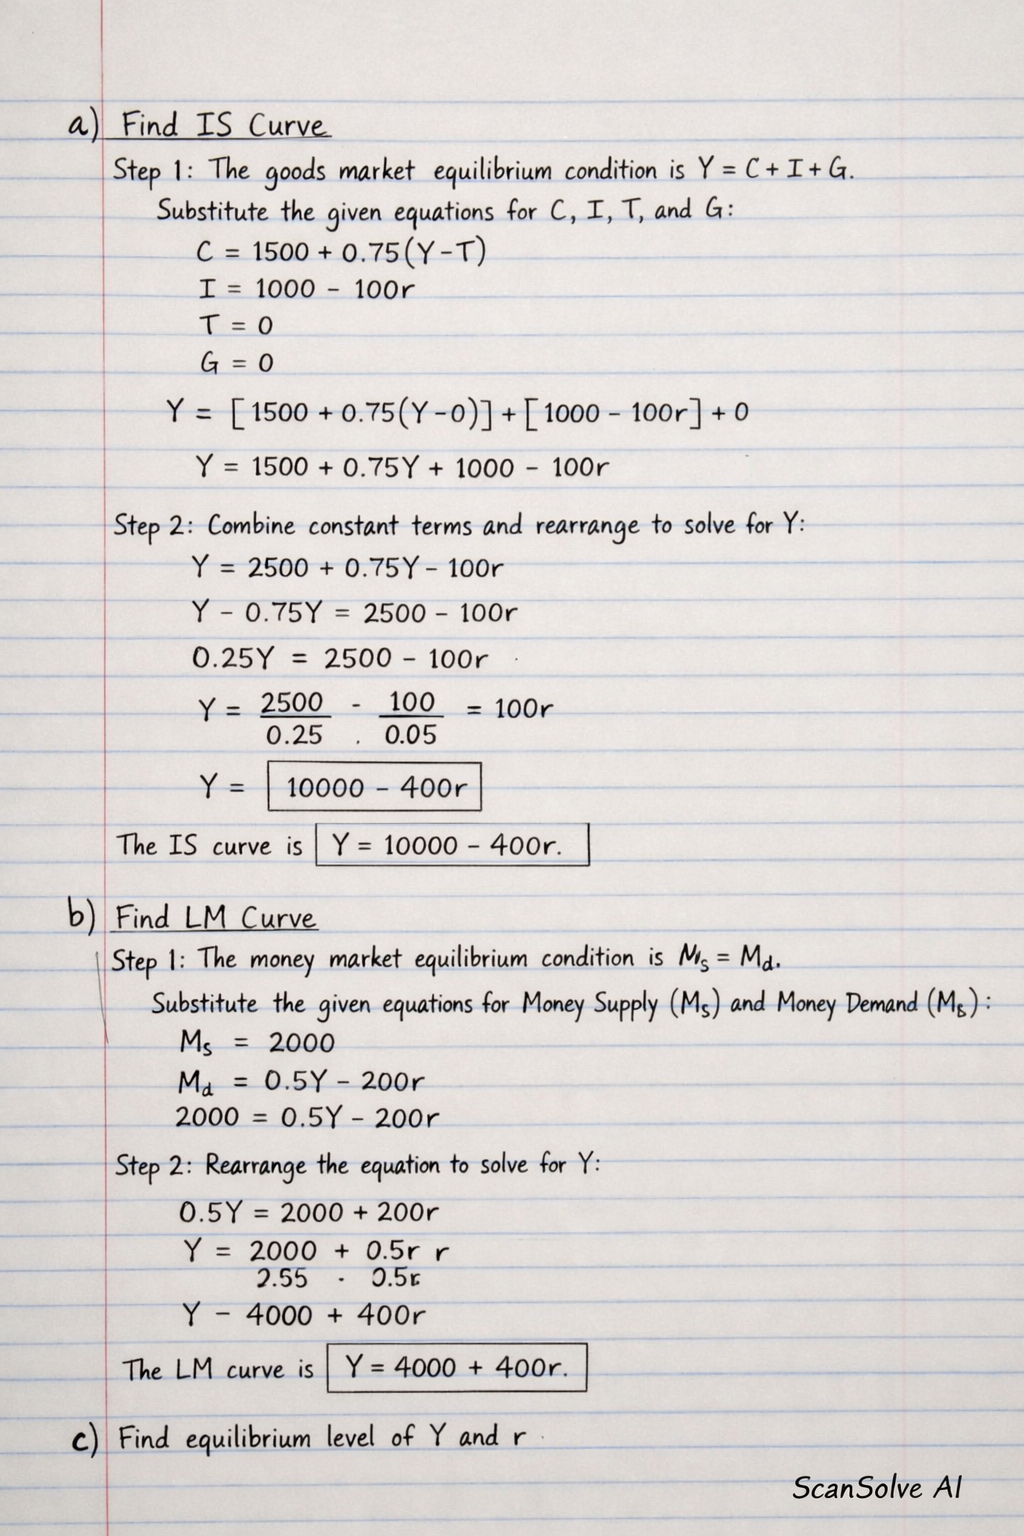 a) Find IS Curve
Step 1: The goods market equilibrium condition is Y = C + I + G.
Substitute the given equations for C, I, T, and G:
C = 1500 + 0.75(Y-T)
I = 1000 - 100r
T = 0
G = 0
Y = [1500 + 0.75(Y-0)] + [1000 - 100r] + 0
Y = 1500 + 0.75Y + 1000 - 100r
Step 2: Combine constant terms and rearrange to solve for Y:
Y = 2500 + 0.75Y - 100r
Y - 0.75Y = 2500 - 100r
0.25Y = 2500 - 100r
Y = 2500 - 100 = 100r
0.25 . 0.05
Y = 10000 - 400r
The IS curve is Y = 10000 - 400r.
b) Find LM Curve
Step 1: The money market equilibrium condition is Ms = Md.
Substitute the given equations for Money Supply (Ms) and Money Demand (Ms):
Ms = 2000
Md = 0.5Y - 200r
2000 = 0.5Y - 200r
Step 2: Rearrange the equation to solve for Y:
0.5Y = 2000 + 200r
Y = 2000 + 0.5r r
2.55 · 0.5r
Y - 4000 + 400r
The LM curve is Y = 4000 + 400r.
c) Find equilibrium level of Y and r
ScanSolve AI